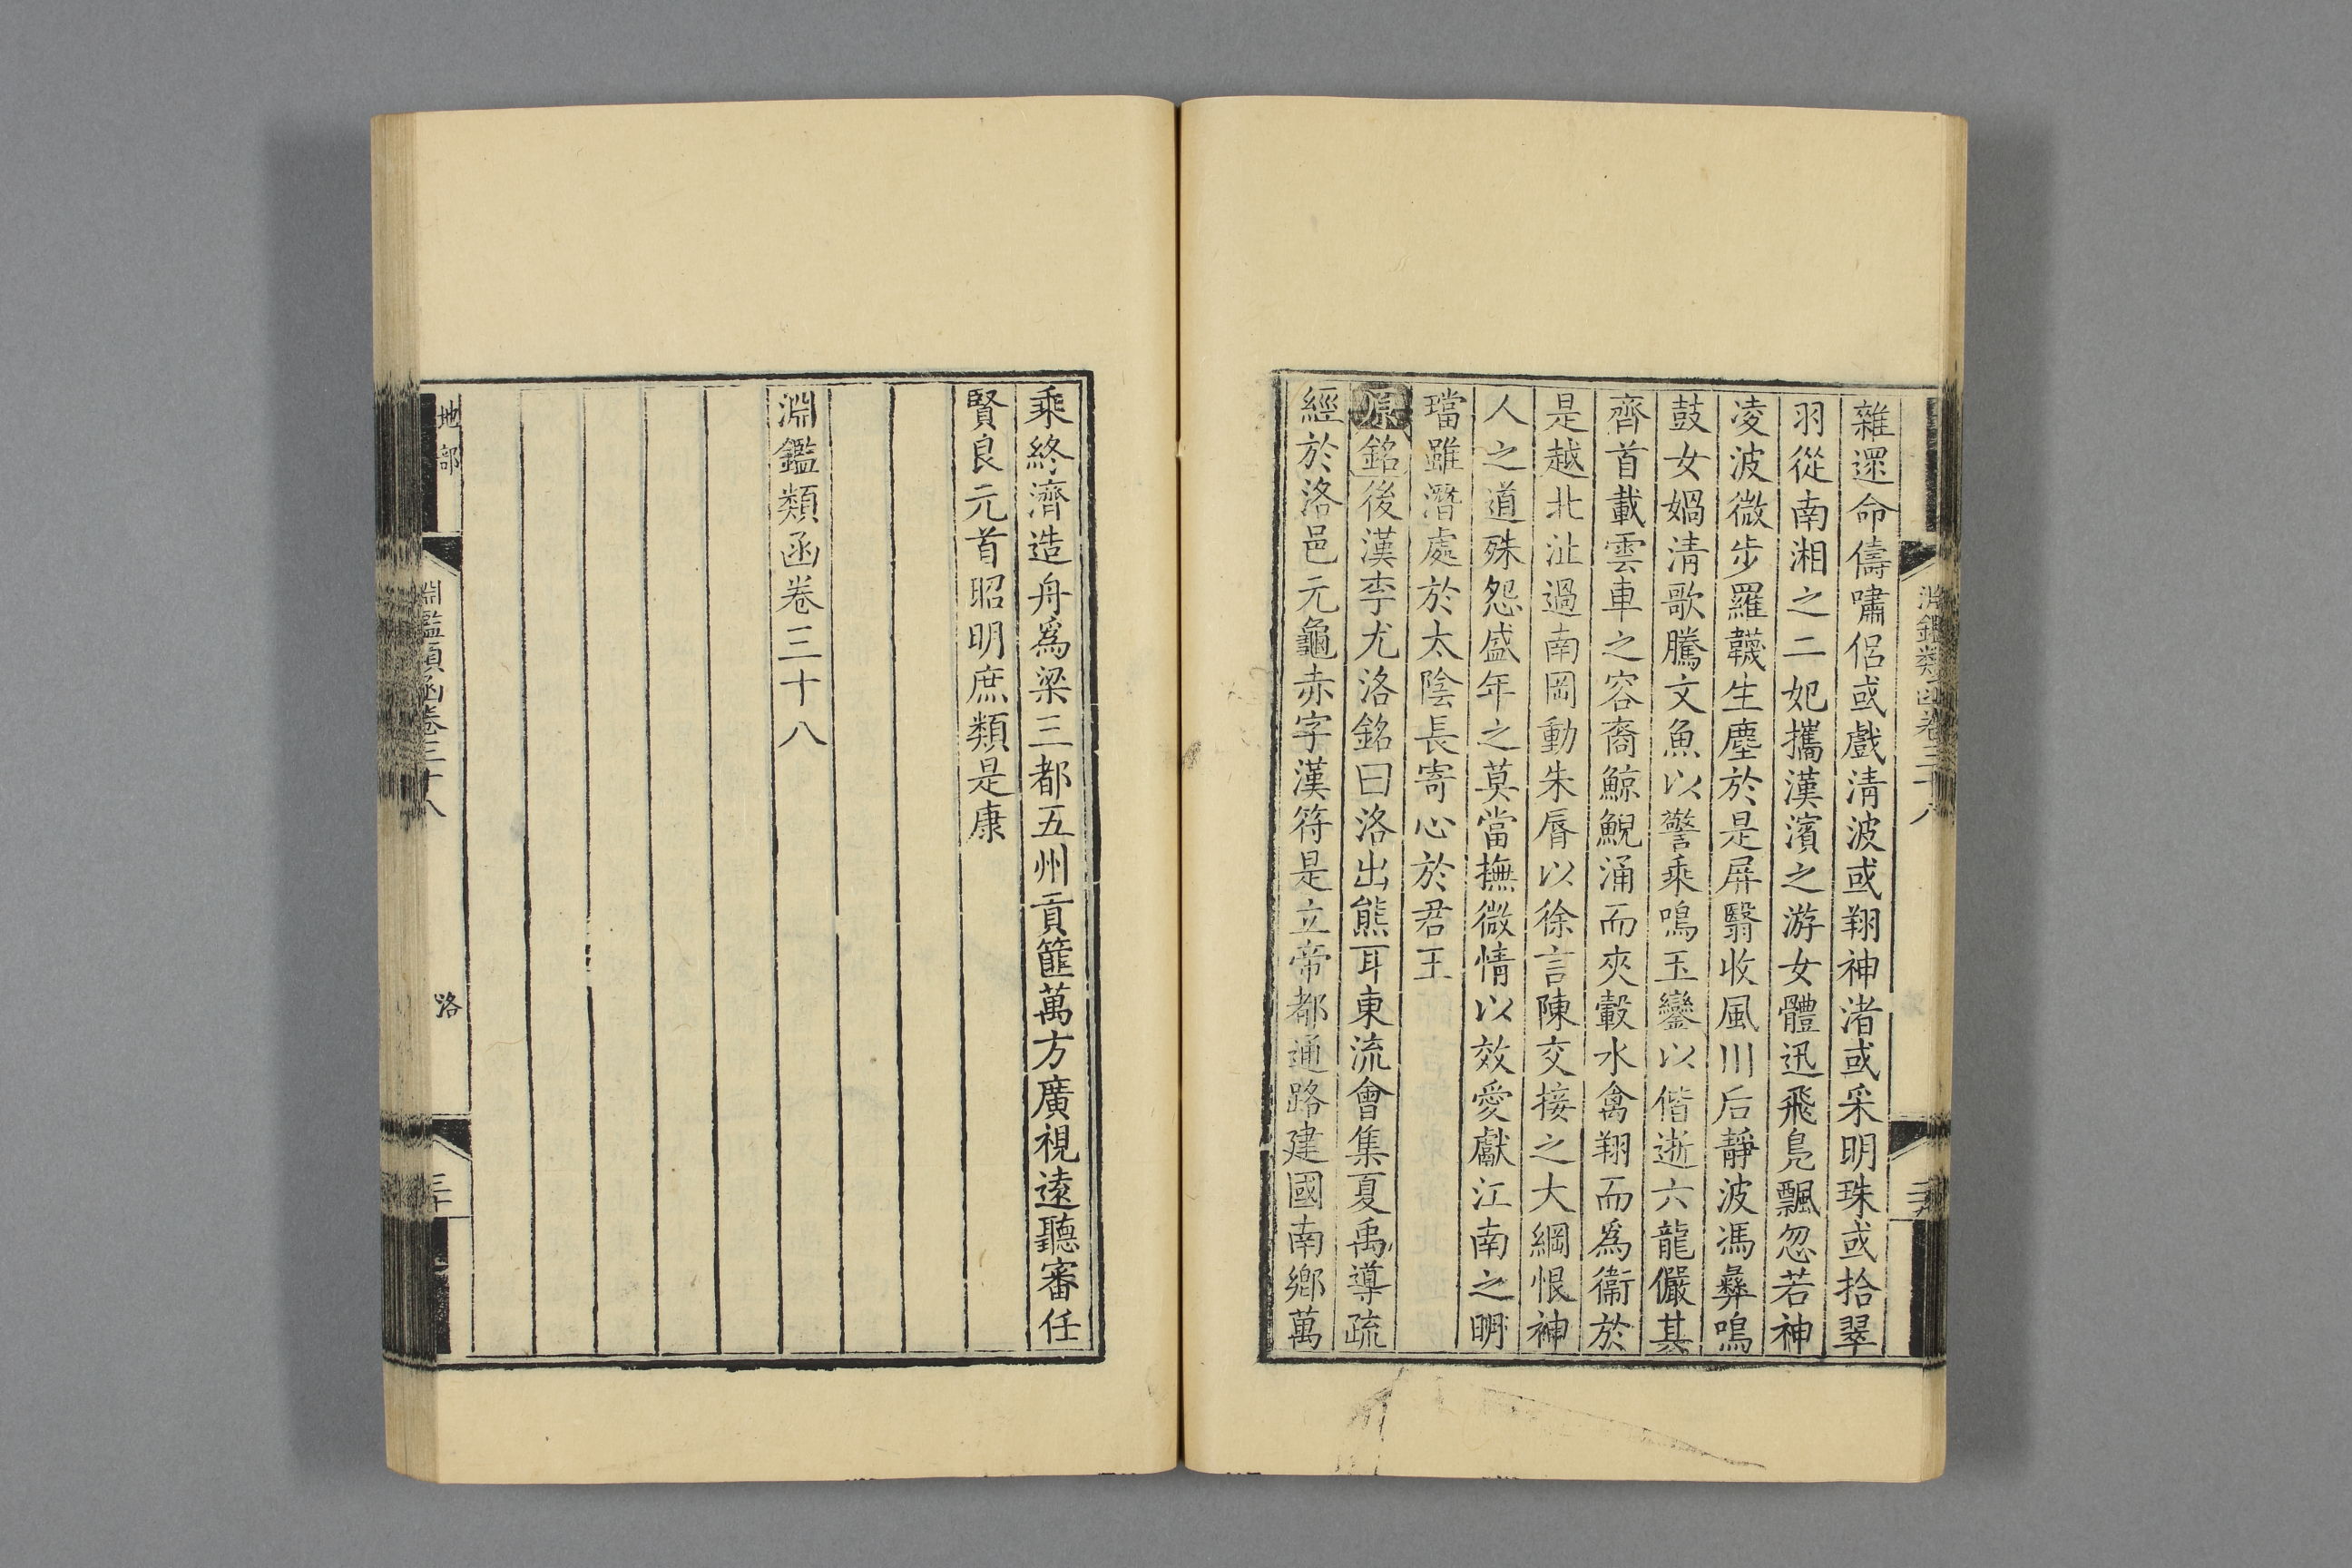 雜還命儔嘯侶或戲清波或翔神渚或采明珠或拾翠
羽從南湘之二妃攜漢濱之游女體迅飛鳧飄忽若神
凌波微步羅韈生塵於是屏翳收風川后靜波馮彝鳴
鼓女媧清歌騰文魚以警乘鳴玉鑾以偕逝六龍儼其
齊首載雲車之容裔鯨鯢涌而夾轂水禽翔而爲衞於
是越北沚過南岡動朱脣以徐言陳交接之大綱恨神
人之道殊怨盛年之莫當撫微情以效愛獻江南之明
璫雖潛處於太陰長寄心於君王
原銘後漢李尤洛銘曰洛出熊耳東流會集夏禹導疏
經於洛邑元龜赤字漢符是立帝都通路建國南鄉萬
乘終濟造舟爲梁三都五州貢篚萬方廣視遠聽審任
賢良元首昭明庶類是康
淵鑑類函卷三十八
地部
淵鑑類函卷三十八
洛